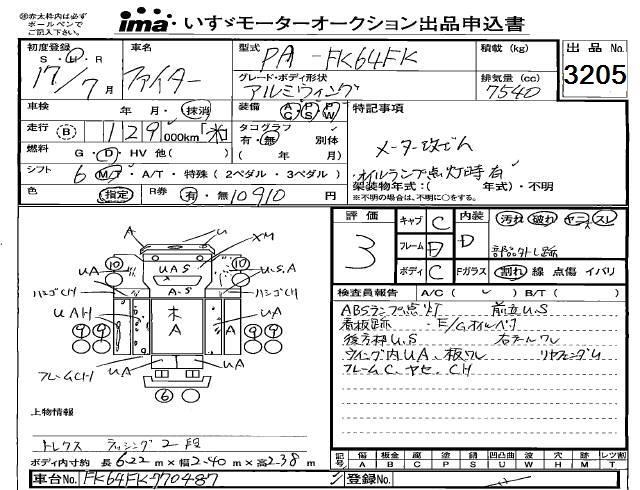 ㊟赤太枠内は必ず
ボールペンで
ご記入下さい。
ima いすゞモーターオークション出品申込書
初度登録 S・H・R 17/7月
車名 ファイター
型式 PA-FK64FK
積載 (kg)
出品No. 3205
グレード・ボディ形状 アルミウィング
排気量 (cc) 7540
車検 年 月・抹消
装備 AC PS PW
特記事項
走行 B 129 000km
タコグラフ 有・無 別体
( 年 月)
メーター改ざん
燃料 G・D・HV 他( )
オイルランプ点灯時有
シフト 6 MT・A/T・特殊(2ペダル・3ペダル)
架装物年式:( 年式)・不明
※不明の場合は、不明に○をする。
色 指定 R券 有・無 10910円
評価 3
キャブ C
内装 D
汚れ 破れ ヤニ スレ
フレーム D
部品外し跡
ボディ C
Fガラス 割れ 線 点傷 イバリ
検査員報告 A/C( ✓ ) B/T( )
ABSランプ点灯 前立U.S
看板跡・E/Gオイルベリ
後方枠U.S 右テールワレ
ウィング内UA、板ワレ
フレームC、ヤセ、CH
A U XM
10 UA UAS 10 U.S.A
ハシゴCH A-S ハシゴCH
UAH 木A A UA
9 9 9 9
フレームCH UA UA
6
上物情報
トレクス ラッシング2段
ボディ内寸約 長6.22m×幅2.40m×高2.38m
記号 傷A 板金B 腐C 塗P 錆S 凹凸曲U 波W 穴H 跡M レツ割T
車台No. FK64FK-770487
登録No.